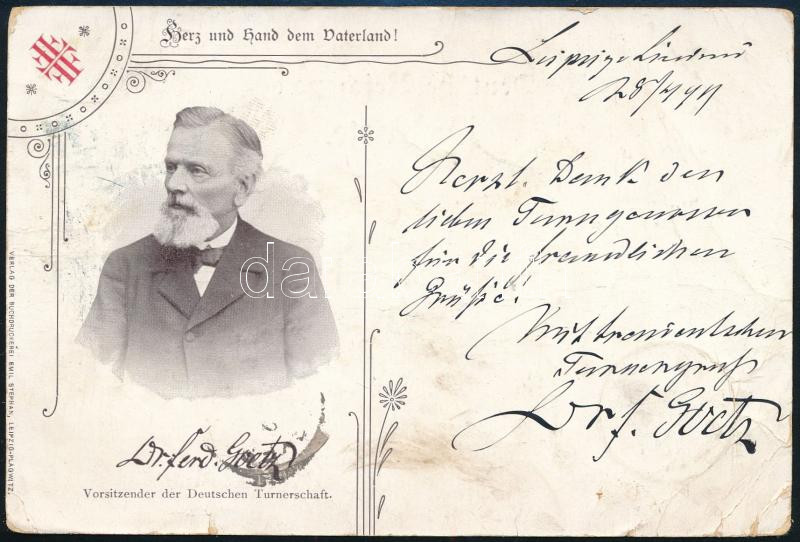 Herz und Hand dem Vaterland!
Leipzig-Lindenau
Herzl. Dank den
lieben Turngenossen
für die freundlichen
Grüße!
Mit treudeutschem
Turnergruß
Dr. F. Goetz
darabanth
Dr. Ferd. Goetz
Vorsitzender der Deutschen Turnerschaft.
VERLAG DER BUCHDRUCKEREI EMIL STEPHAN, LEIPZIG-PLAGWITZ.